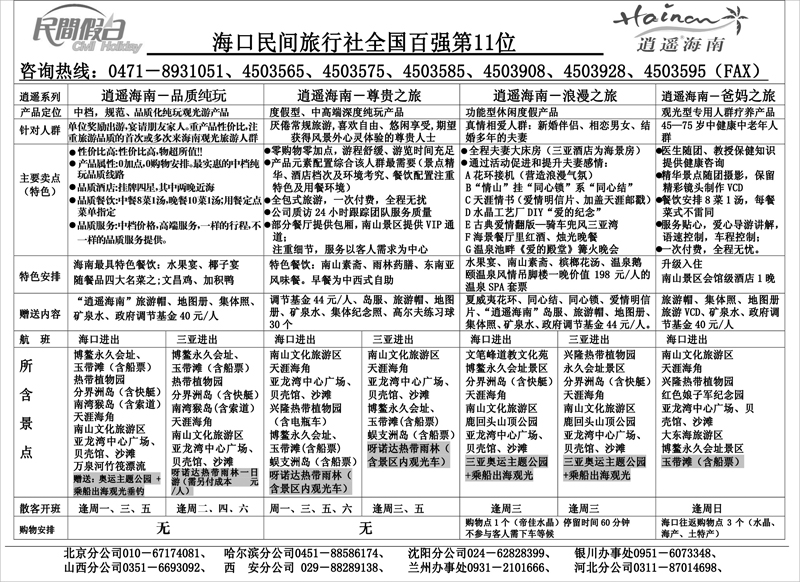 民間假日
Civil Holiday
海口民间旅行社全国百强第11位
Hainan
逍遥海南
咨询热线：0471－8931051、4503565、4503575、4503585、4503908、4503928、4503595（FAX）
逍遥系列 逍遥海南－品质纯玩 逍遥海南－尊贵之旅 逍遥海南－浪漫之旅 逍遥海南－爸妈之旅
产品定位 中档，规范、品质化纯玩观光游产品 度假型、中高端深度纯玩产品 功能型休闲度假产品 观光型专用人群疗养产品
针对人群
单位奖励出游，宴请朋友家人。重产品性价比，注
重旅游品质的首次或多次来海南观光旅游人群
厌倦常规旅游，喜欢自由、悠闲享受，期望
获得风景外心灵体验的尊贵人士
真情相爱人群：新婚伴侣、相恋男女、结
婚多年的夫妻
45—75岁中健康中老年人
群
主要卖点
（特色）
●性价比高：性价比高，物超所值！！
●产品属性：0加点，0购物安排。最实惠的中档纯
玩品质线路
●品质酒店：挂牌四星，其中两晚近海
●品质餐饮：中餐8菜1汤，晚餐10菜1汤；用餐定点
菜单指定
●品质服务：中档价格，高端服务，一样的行程，不
一样的品质服务提供。
●零购物零加点，游程舒缓、游览时间充足
●产品元素配置综合该人群最需要（景点精
华、酒店档次及环境考究、餐饮配置注重
特色及用餐环境）
●全包式旅游，一次付费，全程无扰
●公司质访24小时跟踪团队服务质量
●部分餐厅提供包厢，南山景区提供VIP通
道；
注重细节，服务以客人需求为中心
●全程夫妻大床房（三亚酒店为海景房）
●通过活动促进和提升夫妻感情：
A 花环接机（营造浪漫气氛）
B “情山”挂“同心锁”系“同心结”
C 天涯情书（爱情明信片、加盖天涯邮戳）
D 水晶工艺厂DIY“爱的纪念”
E 古典爱情翻版—骑车兜风三亚湾
F 海景餐厅里红酒、烛光晚餐
G 温泉池畔《爱的殿堂》篝火晚会
●医生随团、教授保健知识
提供健康咨询
●精华景点随团摄影，保留
精彩镜头制作VCD
●餐饮安排8菜1汤，每餐
菜式不雷同
●服务贴心，爱心导游讲解，
语速控制，车程控制；
●一次付费，全程无忧。
特色安排
海南最具特色餐饮：水果宴、椰子宴
随餐品四大名菜之；文昌鸡、加积鸭
特色餐饮：南山素斋、雨林药膳、东南亚
风味餐。早餐为中西式自助
水果宴、南山素斋、槟榔花汤、温泉鹅
颐温泉风情吊脚楼一晚价值198元/人的
温泉SPA套票
升级入住
南山景区会馆级酒店1晚
赠送内容
“逍遥海南”旅游帽、地图册、集体照、
矿泉水、政府调节基金40元/人
调节基金44元/人、岛服、旅游帽、地图
册、矿泉水、集体纪念照、高尔夫练习球
30个
夏威夷花环、同心结、同心锁、爱情明信
片、“逍遥海南”岛服、旅游帽、地图册、
集体照、矿泉水、政府调节基金44元/人。
旅游帽、集体照、地图册
旅游VCD、矿泉水、政府调
节基金40元/人
航 班 海口进出 三亚进出 海口进出 三亚进出 海口进出 三亚进出 海口进出
所含景点
博鳌永久会址、
玉带滩（含船票）
热带植物园
分界洲岛（含快艇）
南湾猴岛（含索道）
天涯海角
南山文化旅游区
亚龙湾中心广场、
贝壳馆、沙滩
万泉河竹筏漂流
赠送：奥运主题公园＋
乘船出海观光垂钓
博鳌永久会址、
玉带滩（含船票）
热带植物园
分界洲岛（含快艇）
南湾猴岛（含索道）
天涯海角
南山文化旅游区
亚龙湾中心广场、
贝壳馆、沙滩
呀诺达热带雨林一日
游（需另付成本 元
/人）
南山文化旅游区
天涯海角
亚龙湾中心广场、
贝壳馆、沙滩
兴隆热带植物园
（含电瓶车）
博鳌永久会址、
玉带滩(含船票)
蜈支洲岛（含船票）
呀诺达热带雨林（
含景区内观光车）
南山文化旅游区
天涯海角
亚龙湾中心广场、
贝壳馆、沙滩
博鳌永久会址、
玉带滩(含船票)
蜈支洲岛（含船票）
呀诺达热带雨林（
含景区内观光车）
文笔峰道教文化苑
博鳌永久会址景区
分界洲岛（含快艇）
天涯海角
南山文化旅游区
鹿回头山顶公园
亚龙湾中心广场、
贝壳馆、沙滩
三亚奥运主题公园
+乘船出海观光
兴隆热带植物园
永久会址景区
分界洲岛（含快艇）
天涯海角
南山文化旅游区
鹿回头山顶公园
亚龙湾中心广场、
贝壳馆、沙滩
三亚奥运主题公园
+乘船出海观光
南山文化旅游区
天涯海角
兴隆热带植物园
红色娘子军纪念园
亚龙湾中心广场、贝
壳馆、沙滩
大东海旅游区
博鳌永久会址景区
玉带滩（含船票）
散客开班 逢周一、三、五 逢周二、四、六 周一、三、五、六 逢周三、五 逢周三 逢周三 逢周日
购物安排 无 无
购物点1个（帝佳水晶）停留时间60分钟
不参与客人需下车等候
海口往返购物点3个（水晶、
海产、土特产）
北京分公司010－67174081、 哈尔滨分公司0451－88586174、 沈阳分公司024－62828399、 银川办事处0951－6073348、
山西分公司0351－6693092、 西 安分公司 029－88289138、 兰州办事处0931－2101666、 河北分公司0311－87014698、